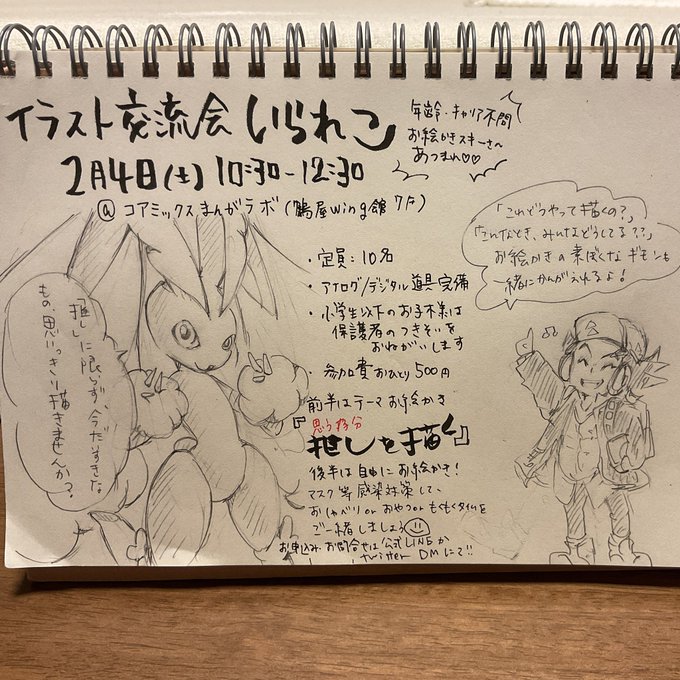 イラスト交流会 いられこ
年齢・キャリア不問
お絵かきスキーさん
あつまれ♡♡
2月4日(土) 10:30-12:30
@ コアミックスまんがラボ(鶴屋wing館 7F)
「これどうやって描くの?」
「こんなとき、みんなどうしてる??」
お絵かきの素ぼくなギモンも
一緒にかんがえれるよ!
・定員:10名
・アナログ/デジタル道具完備
・小学生以下のお子不業は
保護者のつきそいを
おねがいします
・参加費おひとり500円
推しに限らず、今だすきな
もの、思いっきり描きませんか?
前半はテーマお絵かき
思う存分
『推しを描く』
後半は自由にお絵かき!
マスク等感染対策して、
おしゃべりorおやつorもくもくタイムを
ご一緒しましょう
お申込み、お問合せは公式LINEか
twitter DMにて!!